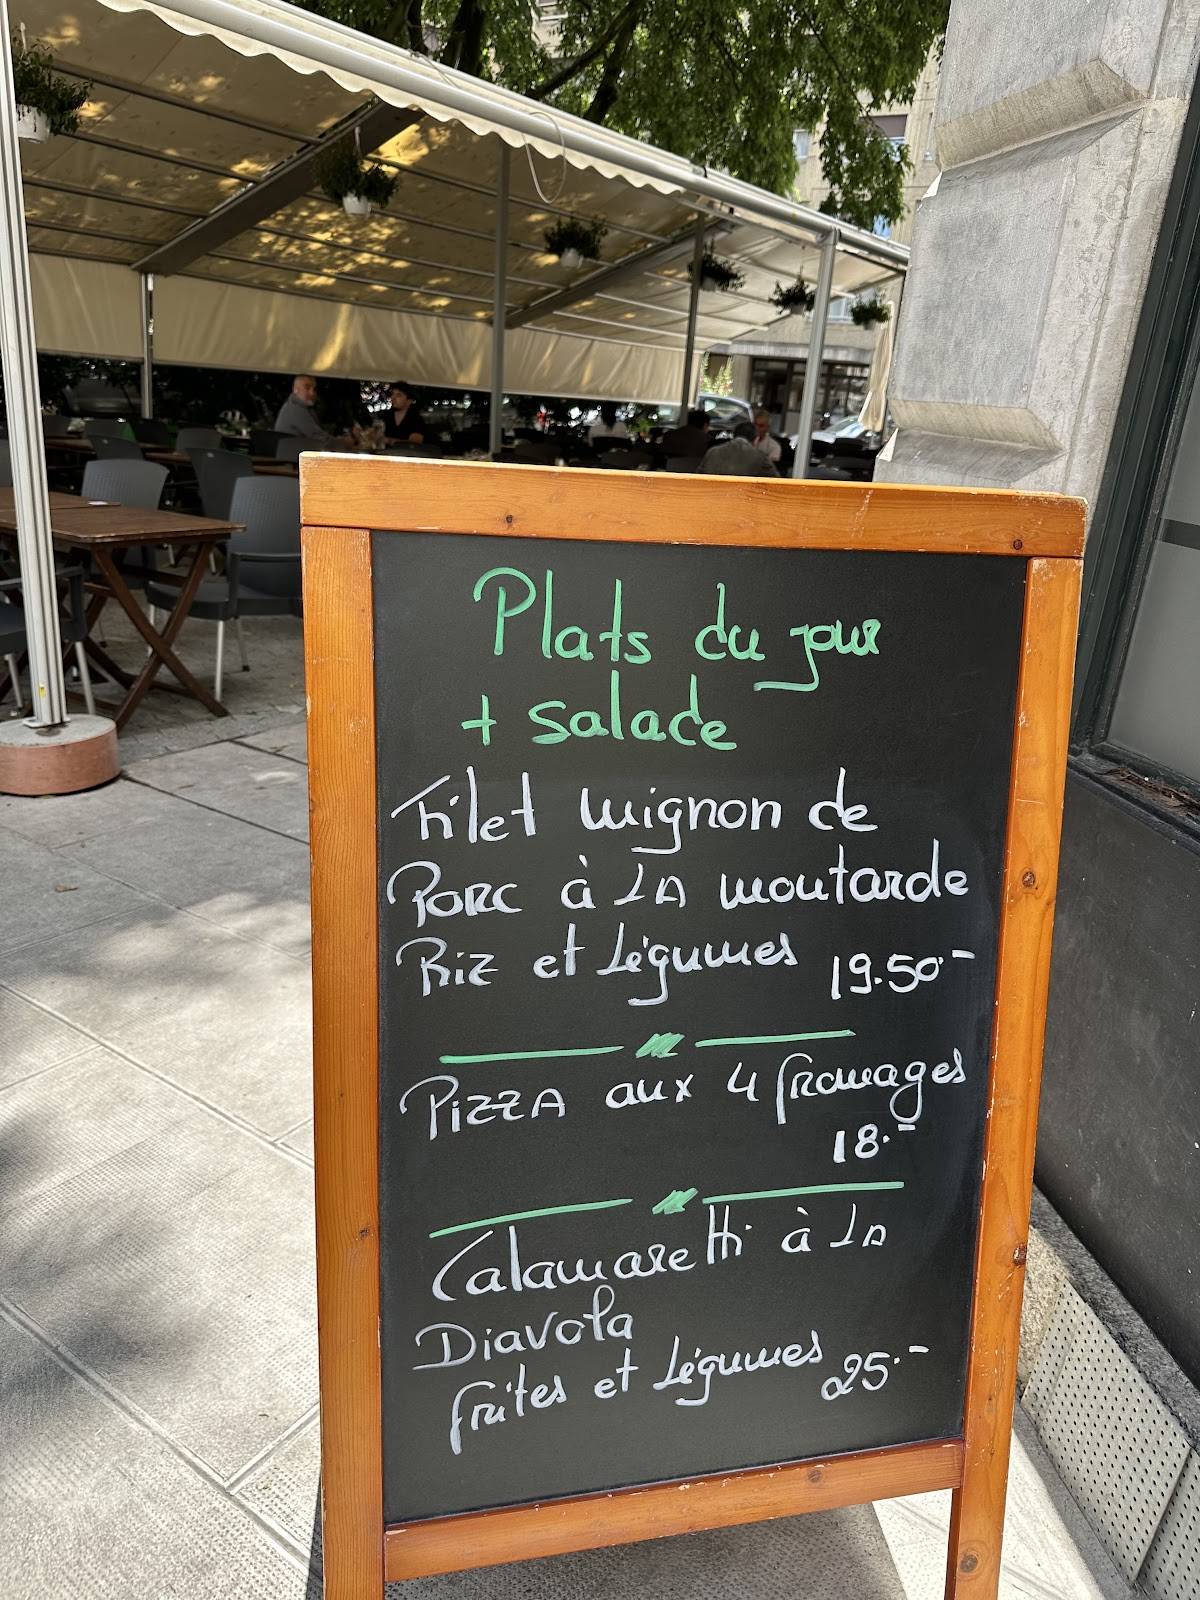 Plats du jour
+ salade
Filet mignon de
Porc à LA moutarde
Riz et Légumes 19.50.-
PizzA aux 4 fromages
18.-
Calamaretti à LA
Diavola
frites et Légumes 25.-